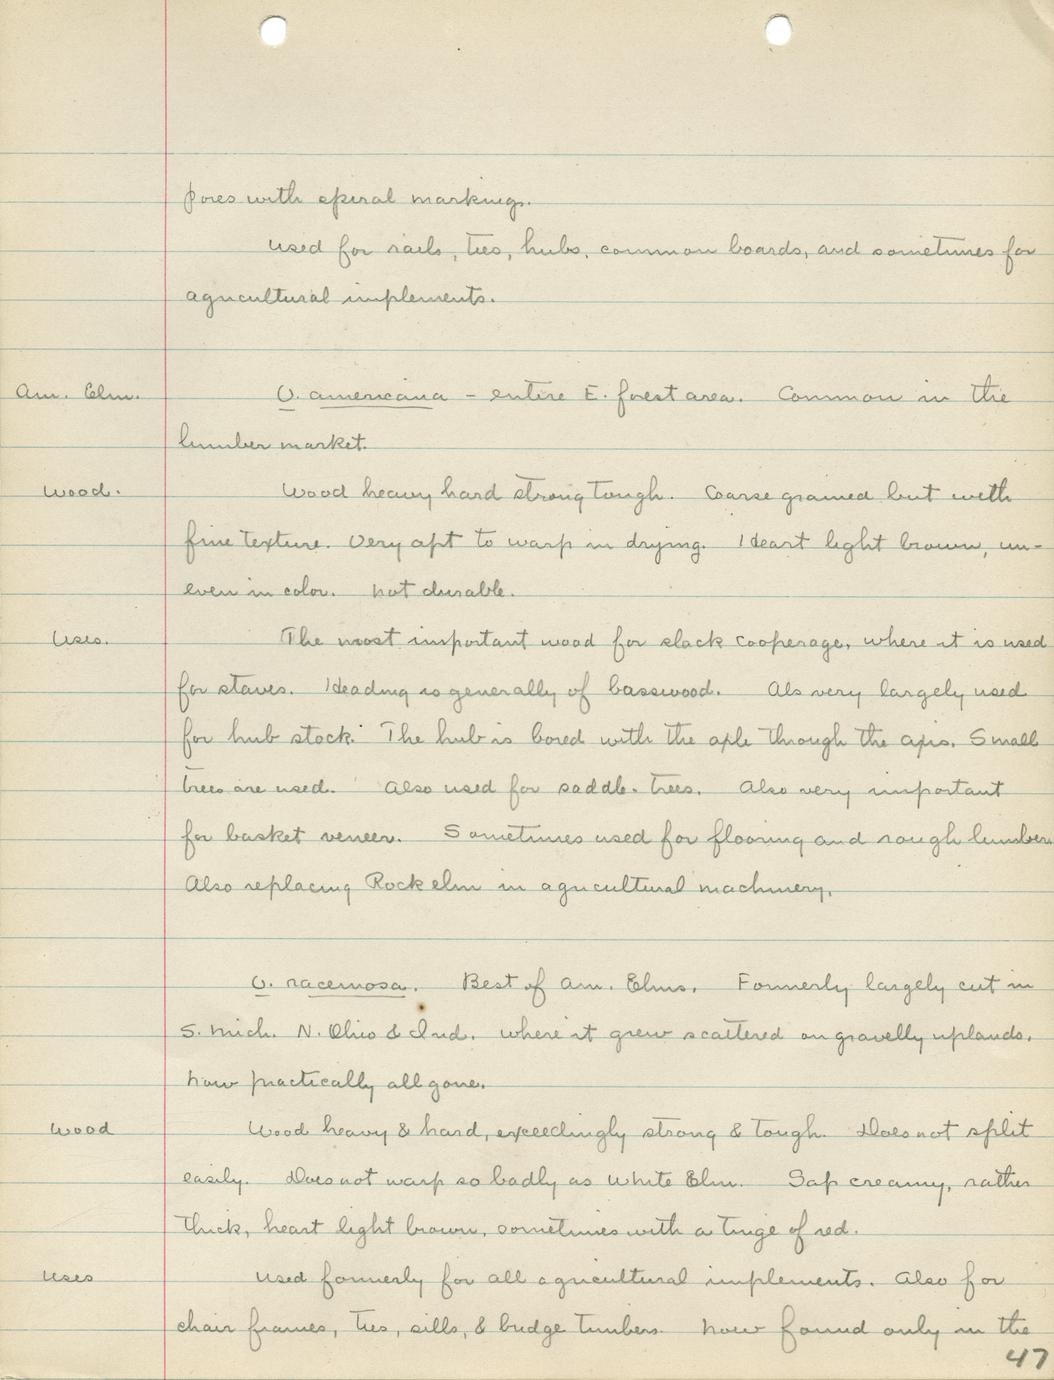 pores with spiral markings.
used for rails, ties, hubs, common boards, and sometimes for
agricultural implements.
Am. Elm. U. americana - entire E. forest area. Common in the
lumber market.
Wood. Wood heavy hard strong tough. Coarse grained but with
fine texture. Very apt to warp in drying. Heart light brown, un-
even in color. Not durable.
Uses. The most important wood for slack cooperage, where it is used
for staves. Heading is generally of basswood. Als very largely used
for hub stock. The hub is bored with the axle through the axis. Small
trees are used. Also used for saddle-trees. Also very important
for basket veneer. Sometimes used for flooring and rough lumber.
Also replacing Rock elm in agricultural machinery.
U. racemosa. Best of Am. Elms. Formerly largely cut in
S. Mich. N. Ohio & Ind. where it grew scattered on gravelly uplands.
Now practically all gone.
Wood Wood heavy & hard, exceedingly strong & tough. Does not split
easily. Does not warp so badly as White Elm. Sap creamy, rather
thick, heart light brown, sometimes with a tinge of red.
Uses Used formerly for all agricultural implements. Also for
chair frames, ties, sills, & bridge timbers. Now found only in the
47